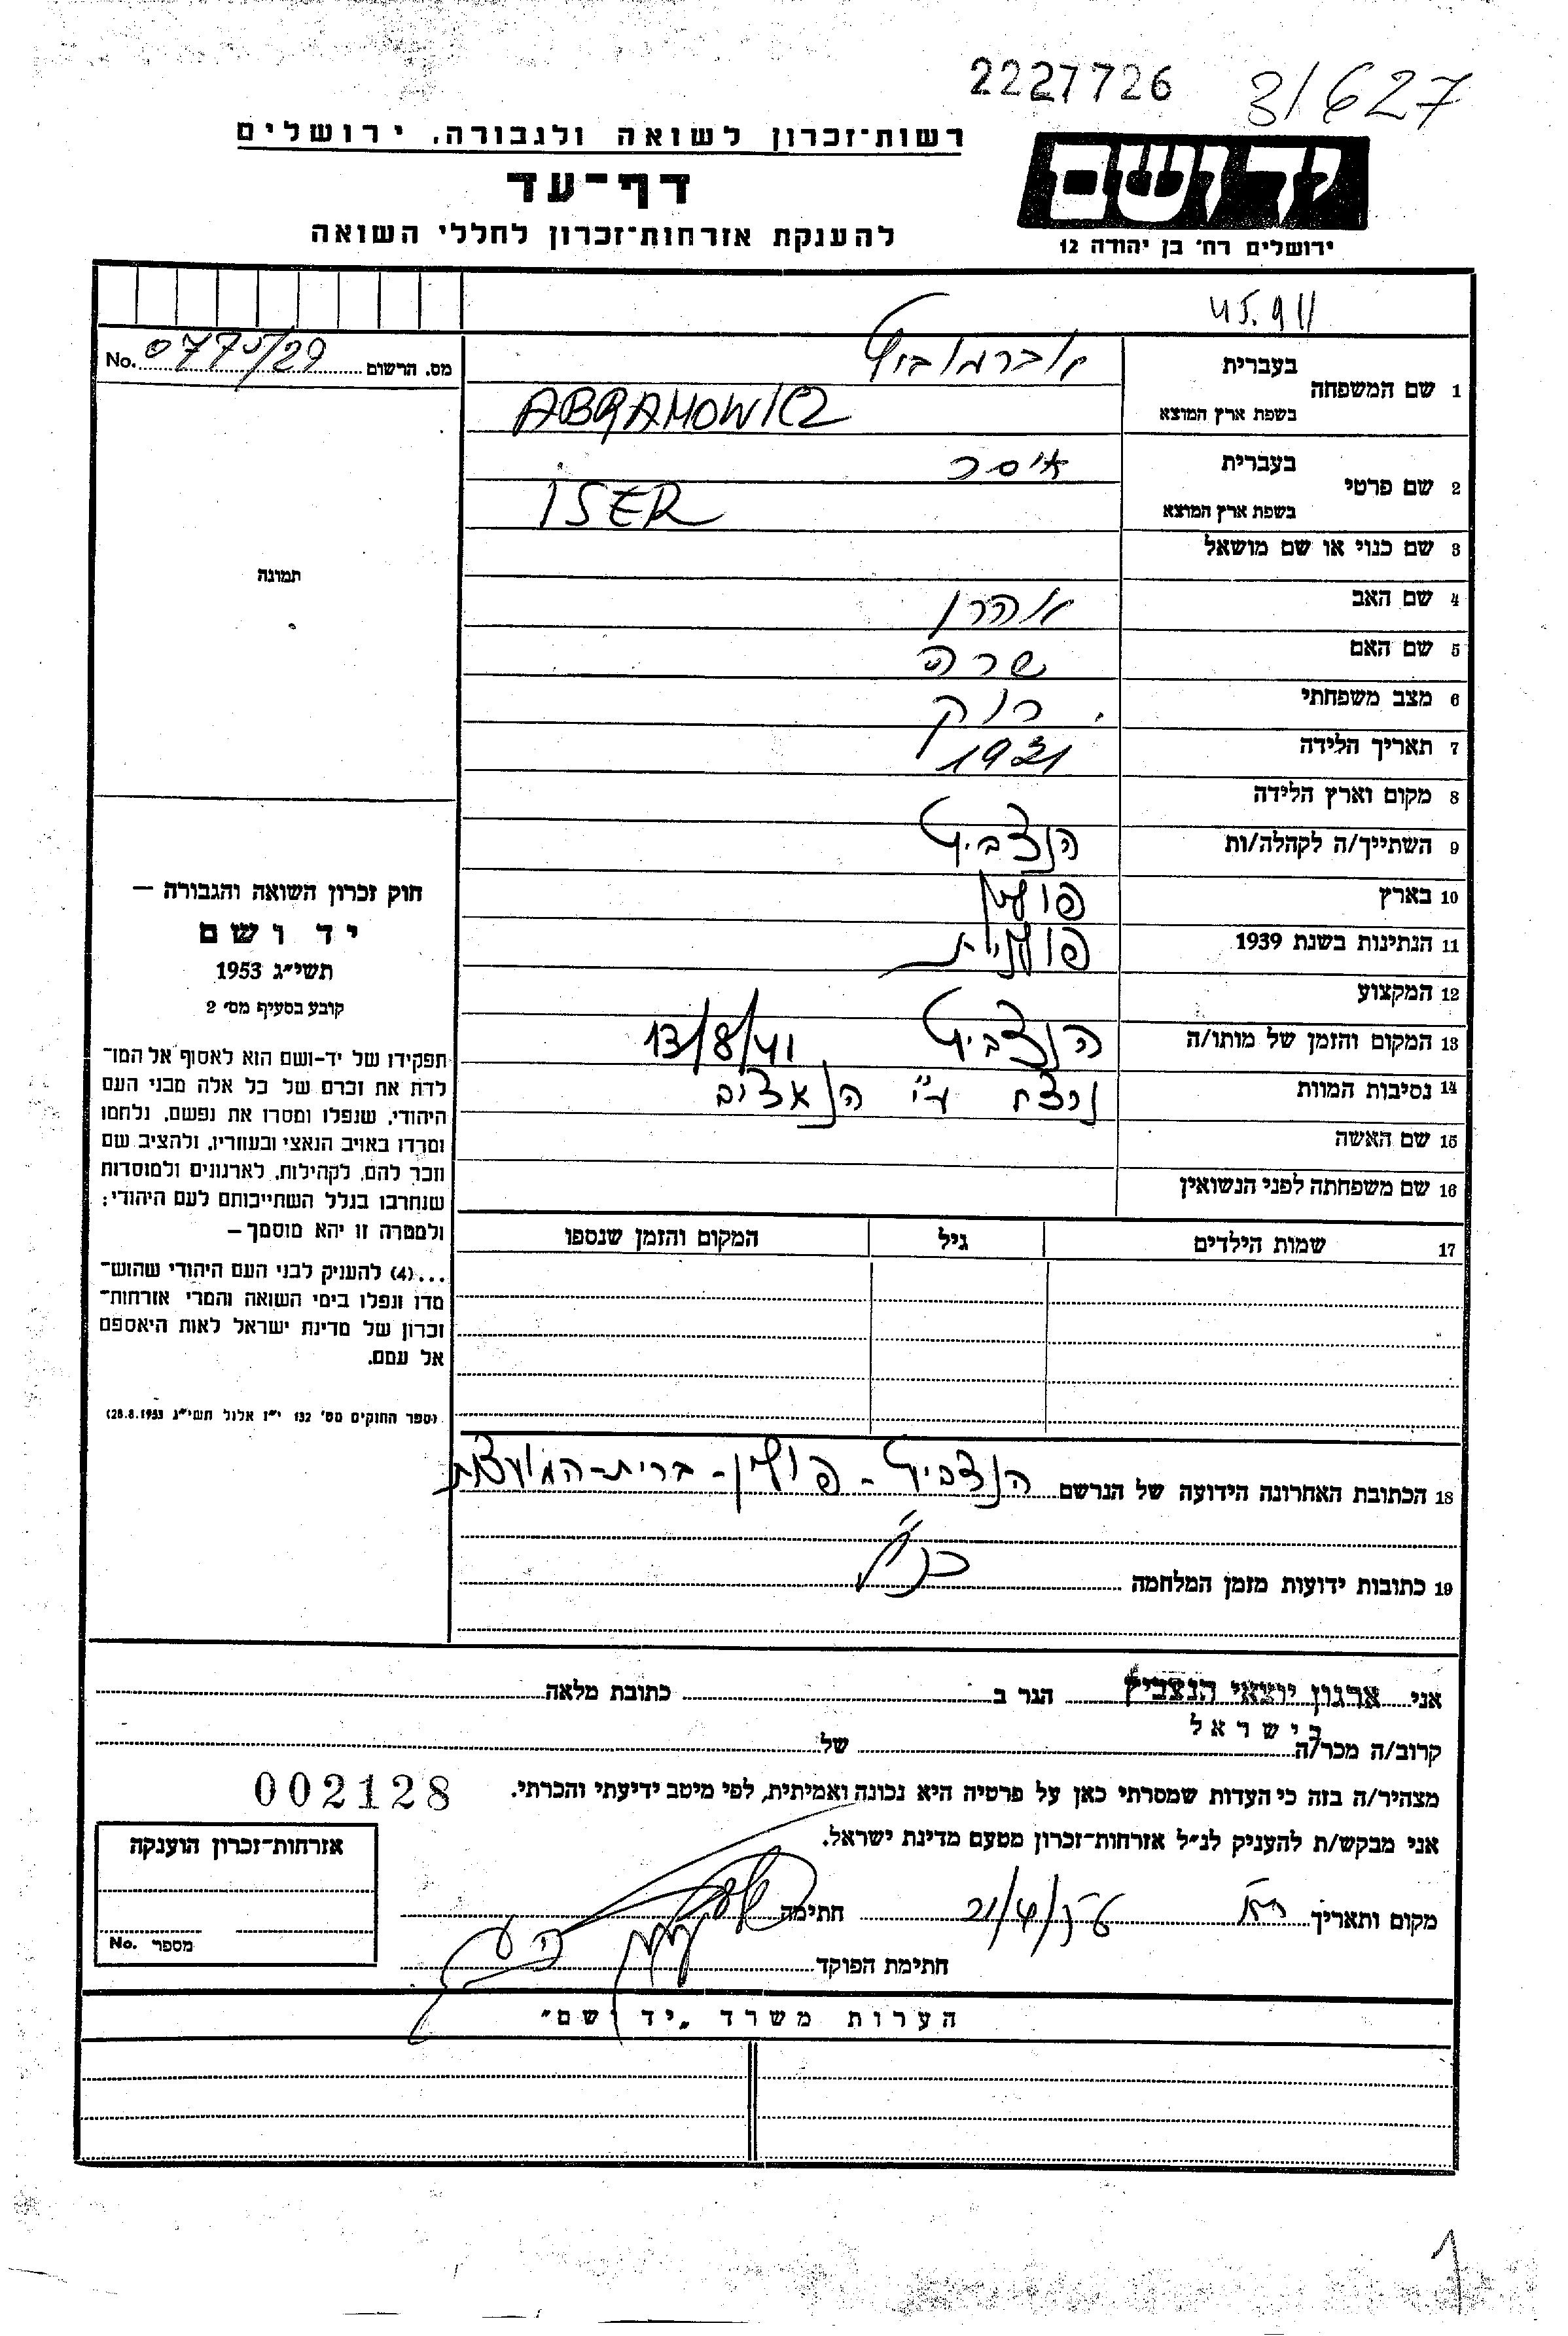 2227726
31627
רשות־זכרון לשואה ולגבורה, ירושלים
דף־עד
להענקת אזרחות־זכרון לחללי השואה
ידושם
ירושלים רח' בן יהודה 12
45.911
מס. הרשום 0775/29 No.
1 שם המשפחה
בעברית אברמוביץ
בשפת ארץ המוצא ABRAMOWICZ
2 שם פרטי
בעברית איסר
בשפת ארץ המוצא ISER
3 שם כנוי או שם מושאל
תמונה
4 שם האב אהרן
5 שם האם שרה
6 מצב משפחתי רווק
7 תאריך הלידה 1921
8 מקום וארץ הלידה
9 השתייך/ה לקהלה/ות הנצביץ
10 בארץ פולין
11 הנתינות בשנת 1939 פולנית
12 המקצוע
13 המקום והזמן של מותו/ה הנצביץ 13/8/41
14 נסיבות המוות נרצח ע"י הנאצים
15 שם האשה
16 שם משפחתה לפני הנשואין
17 שמות הילדים גיל המקום והזמן שנספו
חוק זכרון השואה והגבורה —
יד ושם
תשי״ג 1953
קובע בסעיף מס׳ 2
תפקידו של יד-ושם הוא לאסוף אל המו־
לדת את זכרם של כל אלה מבני העם
היהודי, שנפלו ומסרו את נפשם, נלחמו
ומרדו באויב הנאצי ובעוזריו, ולהציב שם
וזכר להם, לקהילות, לארגונים ולמוסדות
שנחרבו בגלל השתייכותם לעם היהודי;
ולמטרה זו יהא מוסמך —
...(4) להעניק לבני העם היהודי שהוש־
מדו ונפלו בימי השואה והמרי אזרחות־
זכרון של מדינת ישראל לאות היאספם
אל עמם.
(ספר החוקים מס׳ 132 י״ז אלול תשי״ג 28.8.1953)
18 הכתובת האחרונה הידועה של הנרשם הנצביץ - פולין - ברית-המועצות
19 כתובות ידועות מזמן המלחמה כנ"ל
אני ארגון יוצאי הנצביץ הגר ב כתובת מלאה
בישראל
קרוב/ה מכר/ה של
מצהיר/ה בזה כי העדות שמסרתי כאן על פרטיה היא נכונה ואמיתית, לפי מיטב ידיעתי והכרתי.
002128
אני מבקש/ת להעניק לנ״ל אזרחות־זכרון מטעם מדינת ישראל.
מקום ותאריך חתימה
חתימת הפוקד
אזרחות־זכרון הוענקה
מספר No.
הערות משרד „יד ושם״
1